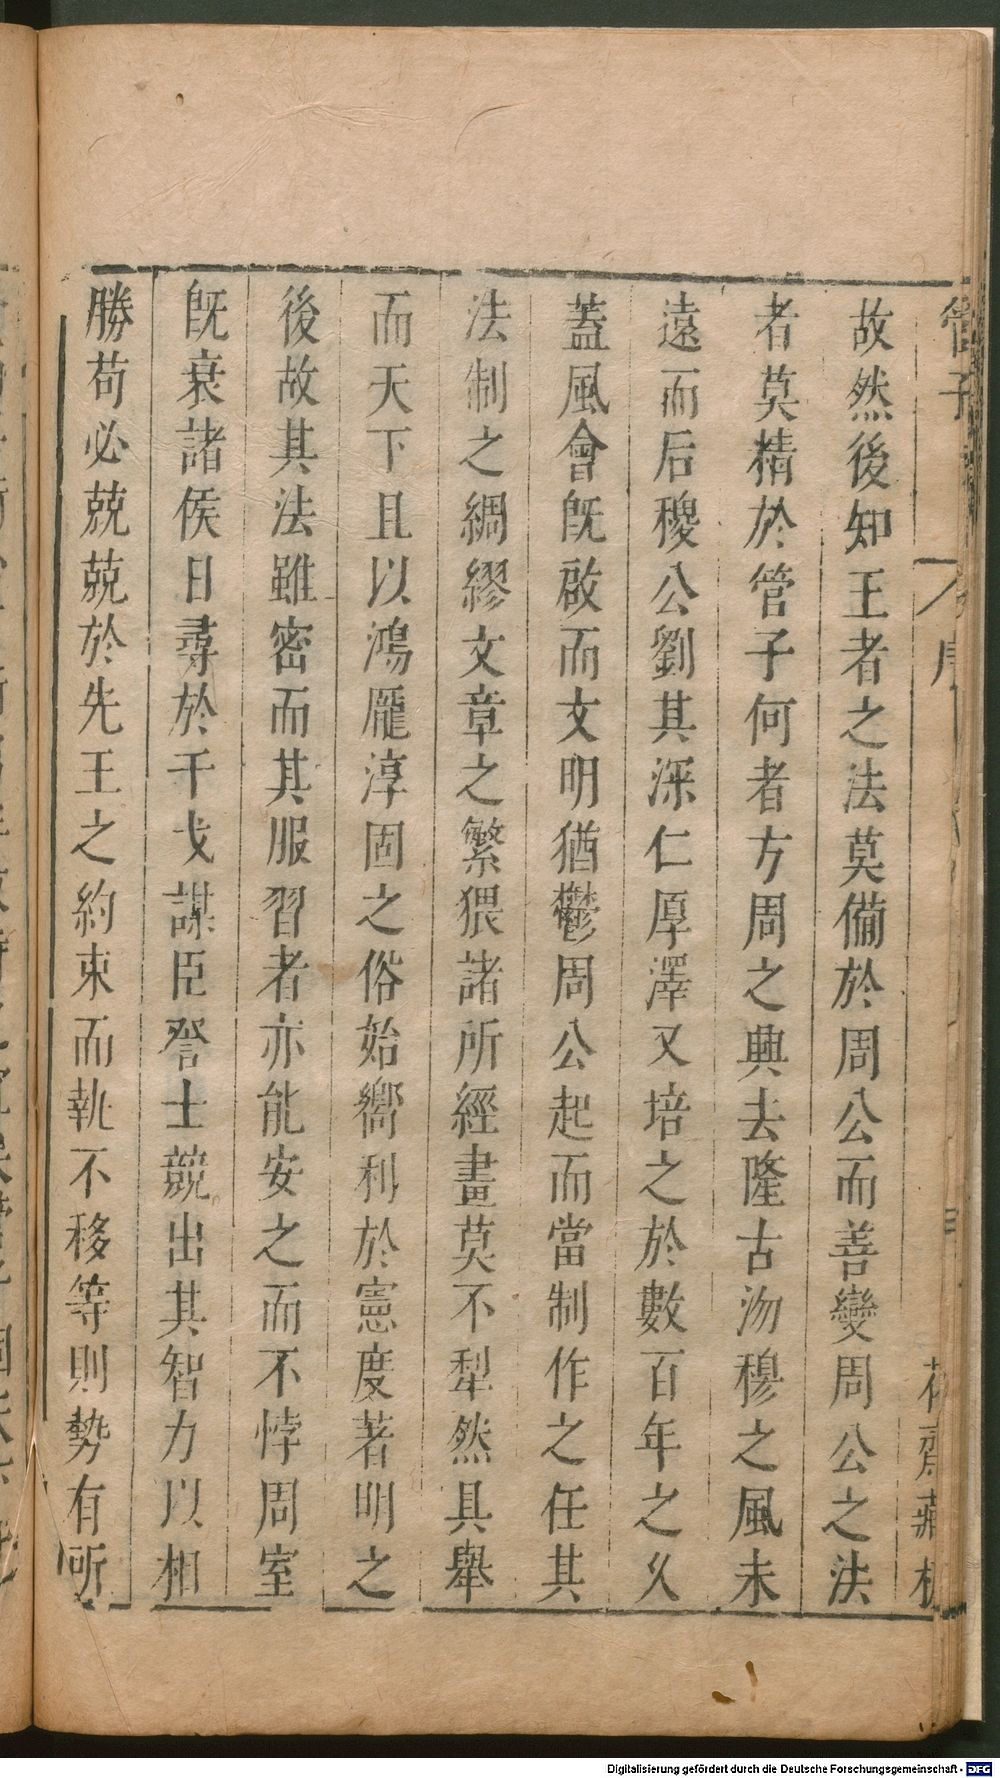 管子
序
花齋藏板
故然後知王者之法莫備於周公而善變周公之法
者莫精於管子何者方周之興去隆古沕穆之風未
遠而后稷公劉其深仁厚澤又培之於數百年之久
蓋風會旣啟而文明猶鬱周公起而當制作之任其
法制之綢繆文章之繁猥諸所經畫莫不犁然具舉
而天下且以鴻厖淳固之俗始嚮利於憲度著明之
後故其法雖密而其服習者亦能安之而不悖周室
旣衰諸侯日尋於干戈謀臣謺士競出其智力以相
勝苟必兢兢於先王之約束而執不移等則勢有所
Digitalisierung gefördert durch die Deutsche Forschungsgemeinschaft - DFG